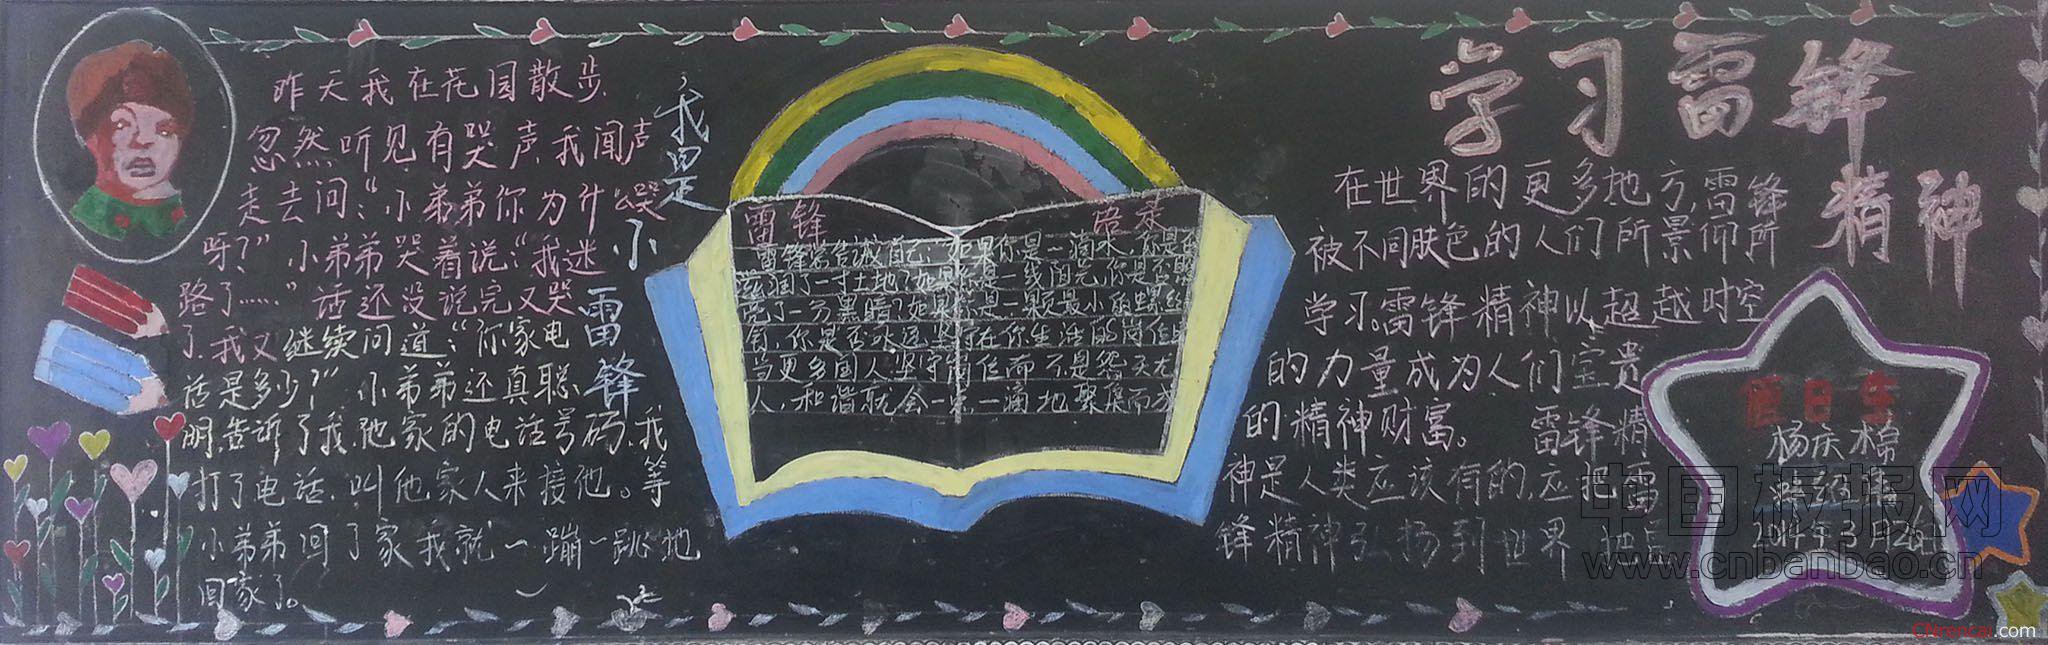 昨天我在花园散步、
忽然听见有哭声、我闻声
走去问:“小弟弟你为什么哭
呀?”小弟弟哭着说:“我迷
路了……”话还没说完又哭
了、我又继续问道:“你家电
话是多少?”小弟弟还真聪
明、告诉了我、他家的电话号码、我
打了电话、叫他家人来接他。等
小弟弟回了家我就一蹦一跳地
回家了。
我是小雷锋
雷锋
雷锋常告诫自己:如果你是一滴水,你是否
滋润了一寸土地?如果你是一线阳光,你是否照
亮了一分黑暗?如果你是一颗最小的螺丝
钉,你是否永远坚守在你生活的岗位
当更多国人坚守岗位而不是怨天尤
人,和谐就会一点一滴地聚集而
学习雷锋
精神
在世界的更多地方,雷锋
被不同肤色的人们所景仰所
学习。雷锋精神以超越时空
的力量成为人们宝贵
的精神财富。 雷锋精
神是人类应该有的,应把雷
锋精神弘扬到世界
值日生
杨庆棉
2014年3月26日
中国板报网
www.cnbanbao.cn
Chrencai.com